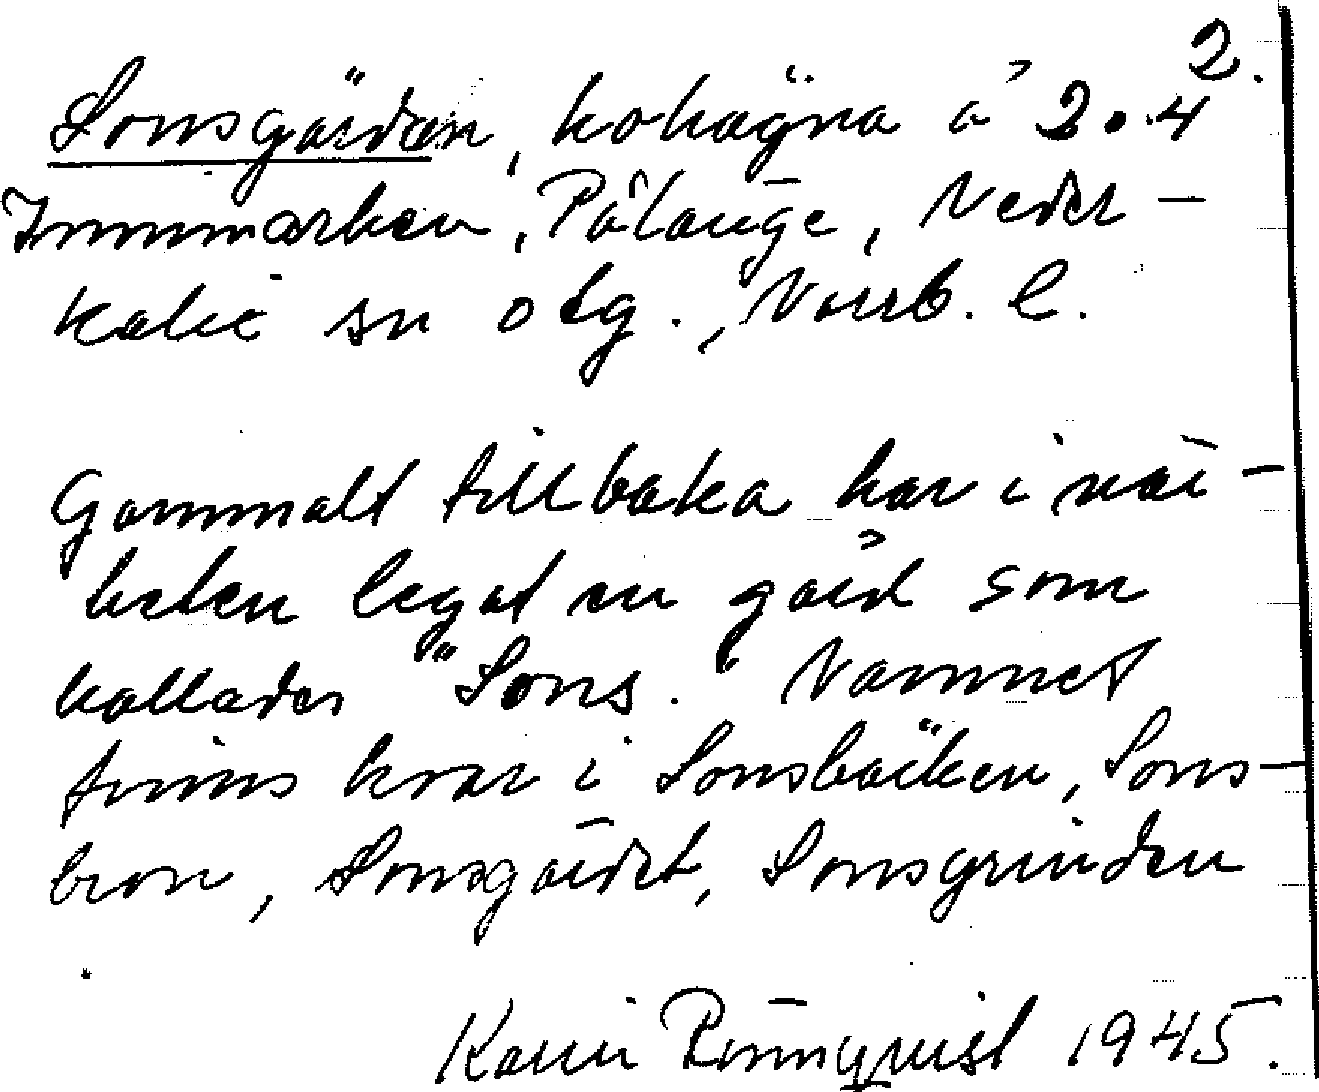 2.
Sonsgärdan, kohägna å 2.4
Inmmarken, Pålänge, Neder-
kalix sn otg., Norrb. l.
Gammalt tillbaka har i när-
heten legat en gård som
kallades "Sons." Namnet
finns kvar i Sonsbäcken, Sons-
bron, Sonsgärdet, Sonsgrinden
Karin Rönnqvist 1945.